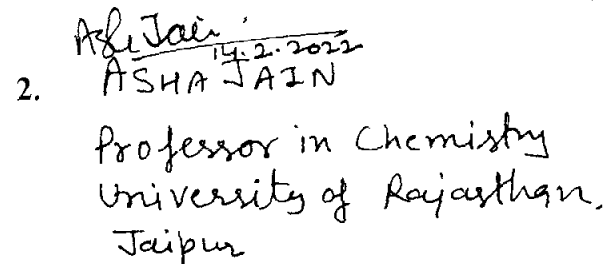 Asha Jain
14.2.2022
2. ASHA JAIN
Professor in Chemistry
University of Rajasthan,
Jaipur